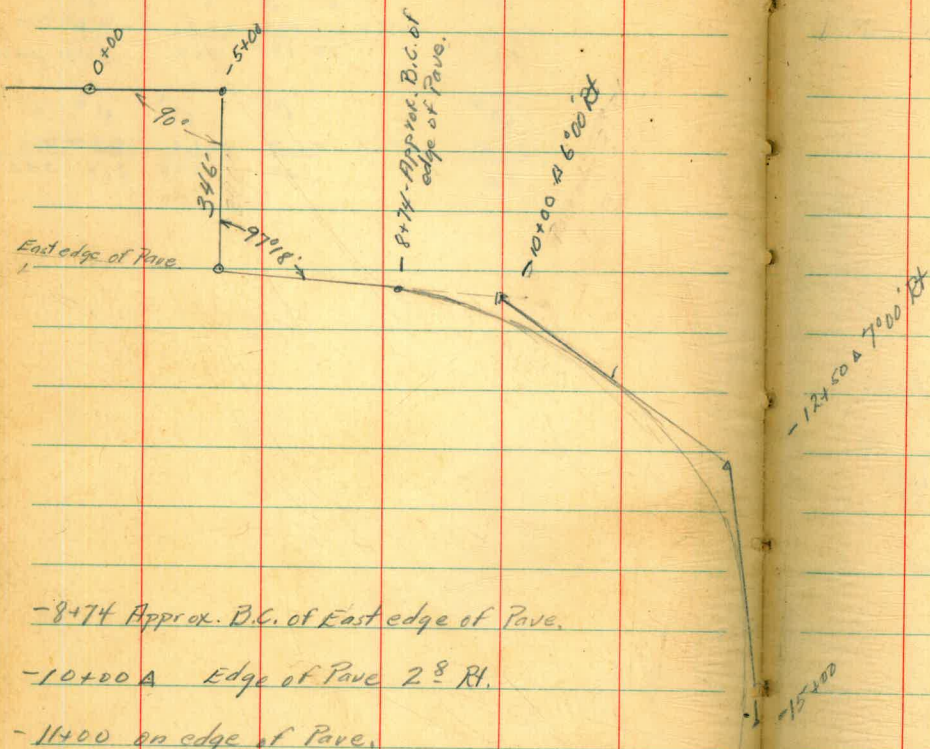 0+00
-5+00
90°
346'
97°18'
East edge of Pave.
-8+74-Approx. B.C. of
edge of Pave.
-10+00 Δ 6°00' Rt
-12+50 Δ 7°00' Rt
-15+00
-8+74 Approx. B.C. of East edge of Pave.
-10+00 Δ Edge of Pave 2⁸ Rt.
-11+00 on edge of Pave.